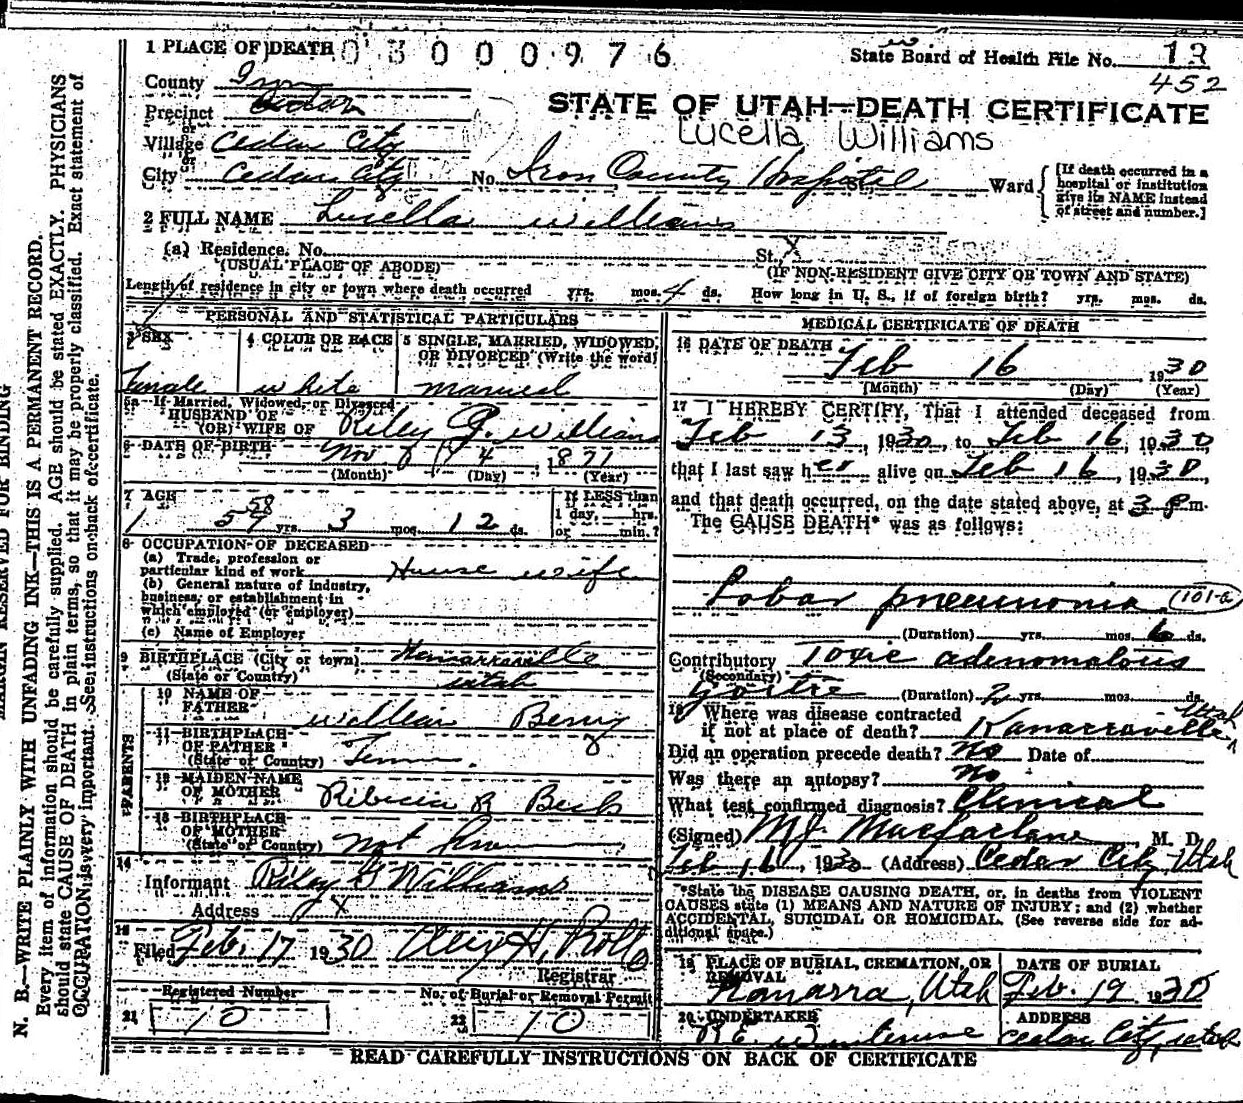 1 PLACE OF DEATH 0 3 0 0 0 9 7 6
State Board of Health File No. 13
452
County Iron
STATE OF UTAH—DEATH CERTIFICATE
Precinct Cedar
Lucella Williams
or
Village Cedar City
or
City Cedar City No. Iron County Hospital St., Ward
[If death occurred in a hospital or institution give its NAME instead of street and number.]
2 FULL NAME Lucella Williams
(a) Residence. No. St. X
(USUAL PLACE OF ABODE) (IF NON-RESIDENT GIVE CITY OR TOWN AND STATE)
Length of residence in city or town where death occurred yrs. mos. 4 ds. How long in U. S., if of foreign birth? yrs. mos. ds.
PERSONAL AND STATISTICAL PARTICULARS
3 SEX 4 COLOR OR RACE 5 SINGLE, MARRIED, WIDOWED, OR DIVORCED (Write the word)
Female white married
5a If Married, Widowed, or Divorced
HUSBAND OF
(OR) WIFE OF Riley G. Williams
6 DATE OF BIRTH Nov 4 1871
(Month) (Day) (Year)
7 AGE If LESS than
58
57 yrs. 3 mos. 12 ds. 1 day, hrs. or min.?
8 OCCUPATION OF DECEASED
(a) Trade, profession or
particular kind of work House wife
(b) General nature of industry,
business, or establishment in
which employed (or employer)
(c) Name of Employer
9 BIRTHPLACE (City or town) Kanarraville
(State or Country) Utah
PARENTS
10 NAME OF
FATHER William Berry
11 BIRTHPLACE
OF FATHER
(State or Country) Tenn.
12 MAIDEN NAME
OF MOTHER Ribecia R Beck
13 BIRTHPLACE
OF MOTHER
(State or Country) not known
14
Informant Riley G Williams
Address X
15
Filed Feb. 17 1930
Registrar
Registered Number No. of Burial or Removal Permit
21 10 22 10
MEDICAL CERTIFICATE OF DEATH
16 DATE OF DEATH
Feb 16 1930
(Month) (Day) (Year)
17 I HEREBY CERTIFY, That I attended deceased from
Feb 13, 1930, to Feb 16, 1930,
that I last saw her alive on Feb 16, 1930,
and that death occurred, on the date stated above, at 3 P m.
The CAUSE DEATH* was as follows:
Lobar pneumonia 101-a
(Duration) yrs. mos. 6 ds.
Contributory Toxic adenomatous
(Secondary)
Goitre (Duration) 2 yrs. mos. ds.
18 Where was disease contracted
if not at place of death? Kanarraville Utah
Did an operation precede death? No Date of
Was there an autopsy? No
What test confirmed diagnosis? Clinical
(Signed) M J Macfarlane M. D.
Feb 16, 1930 (Address) Cedar City, Utah
*State the DISEASE CAUSING DEATH, or, in deaths from VIOLENT
CAUSES state (1) MEANS AND NATURE OF INJURY; and (2) whether
ACCIDENTAL, SUICIDAL OR HOMICIDAL. (See reverse side for ad-
ditional space.)
19 PLACE OF BURIAL, CREMATION, OR DATE OF BURIAL
REMOVAL
Kanarra, Utah Feb. 19 1930
20 UNDERTAKER ADDRESS
Cedar City, Utah
READ CAREFULLY INSTRUCTIONS ON BACK OF CERTIFICATE
MARGIN RESERVED FOR BINDING
N. B.—WRITE PLAINLY WITH UNFADING INK—THIS IS A PERMANENT RECORD.
Every item of information should be carefully supplied. AGE should be stated EXACTLY. PHYSICIANS
should state CAUSE OF DEATH in plain terms, so that it may be properly classified. Exact statement of
OCCUPATION is very important. See instructions on back of certificate.